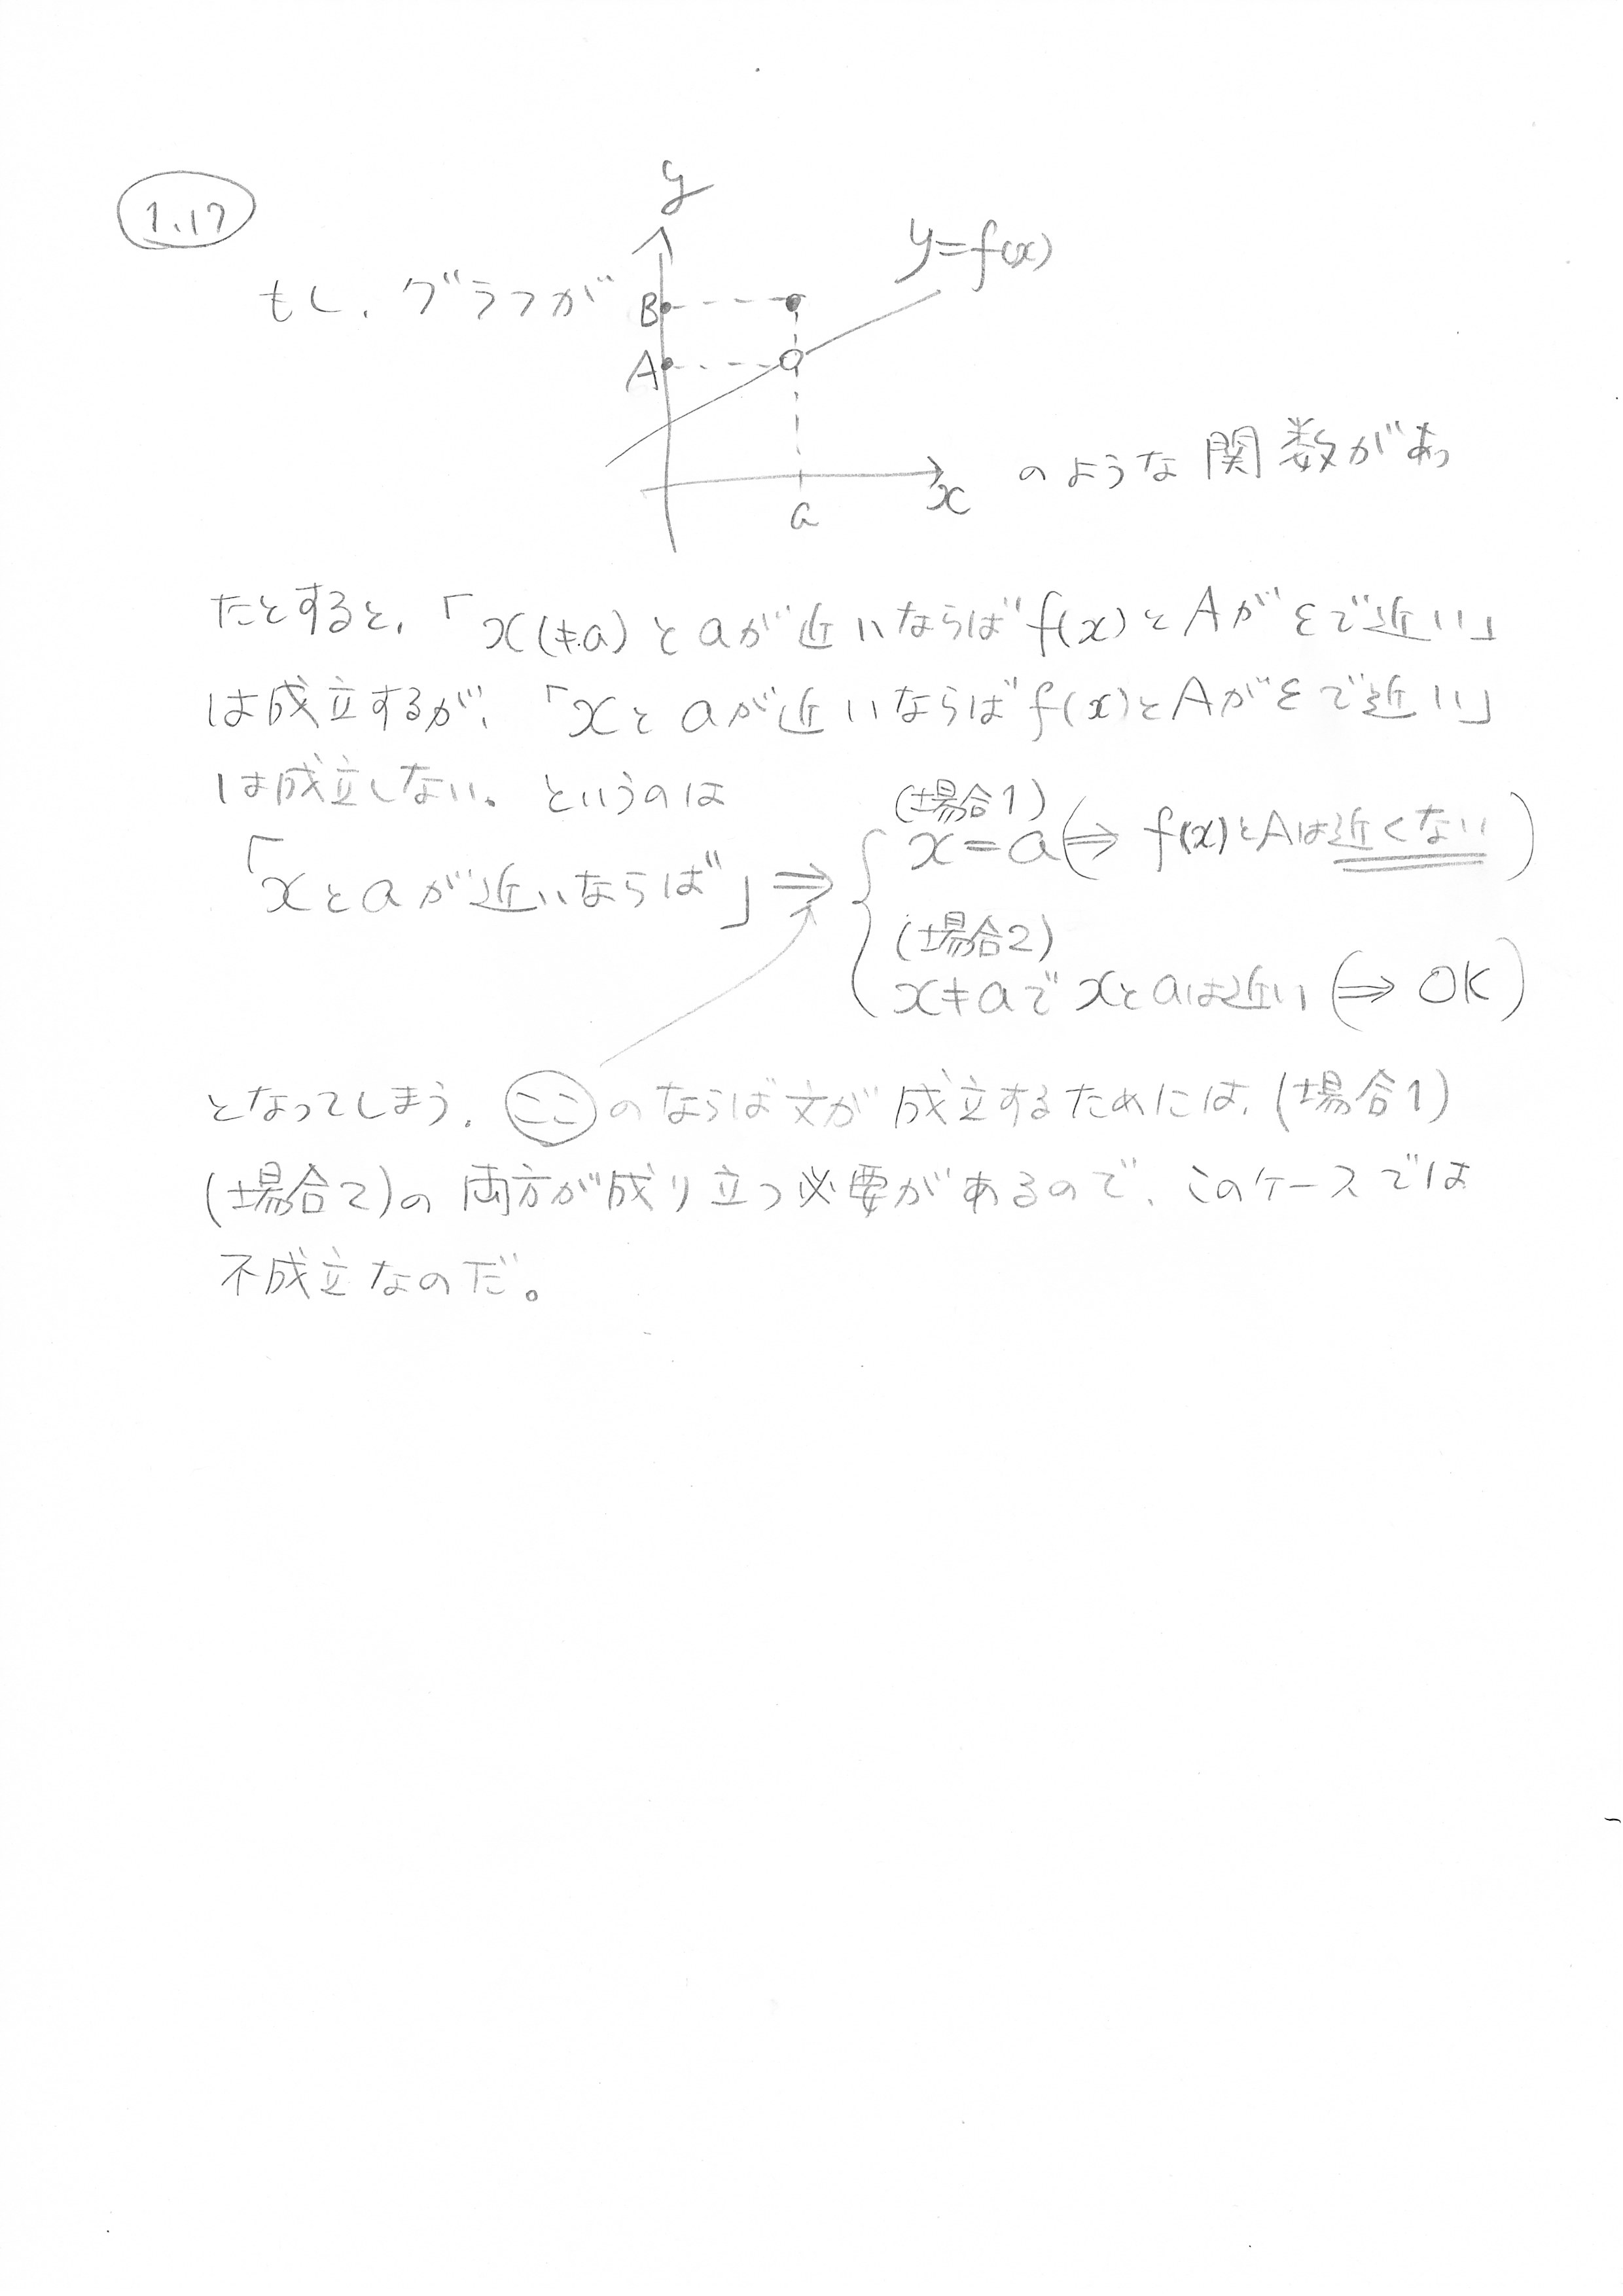 1.17
y
y=f(x)
もし、グラフが
B
A
a
x
のような関数があっ
たとすると、「x(≠a)とaが近いならばf(x)とAがεで近い」
は成立するが、「xとaが近いならばf(x)とAがεで近い」
は成立しない。というのは
(場合1)
x=a(⇒ f(x)とAは近くない)
「xとaが近いならば」⇒
(場合2)
x≠aでxとaは近い(⇒ OK)
となってしまう。ここのならば文が成立するためには、(場合1)
(場合2)の両方が成り立つ必要があるので、このケースでは
不成立なのだ。